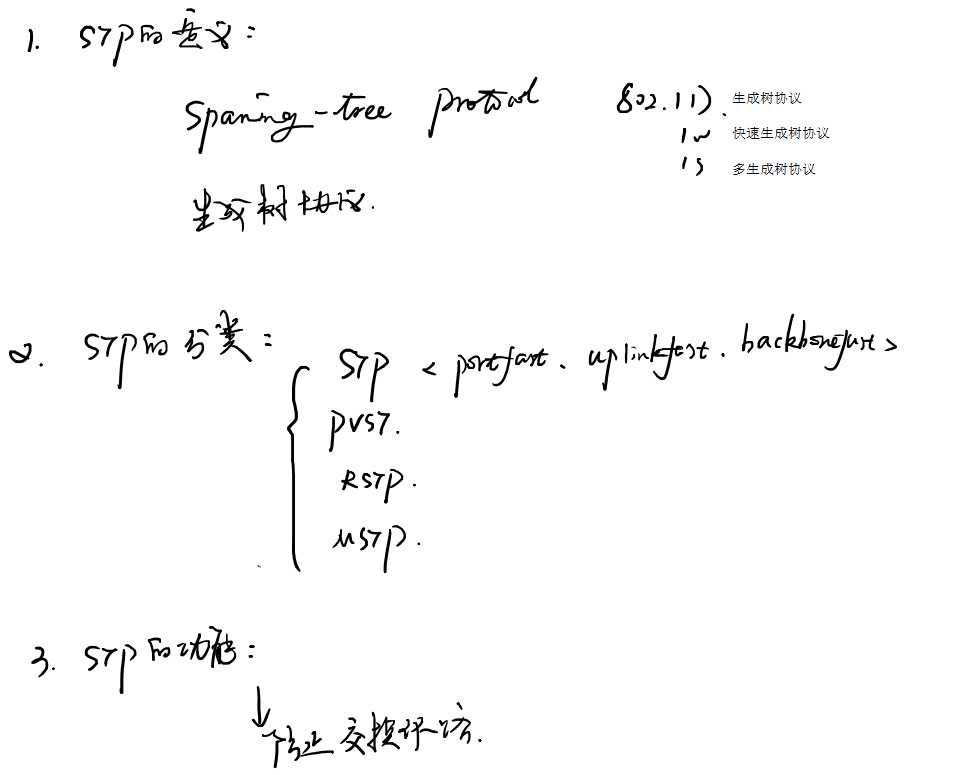 1. STP的意义：
Spaning-tree protocol 802.1D. 生成树协议
1w 快速生成树协议
1s 多生成树协议
生成树协议.
2. STP的分类：
STP < portfast、uplinkfast、backbonefast >
PVST.
RSTP.
MSTP.
3. STP的功能：
↓
防止交换环路.